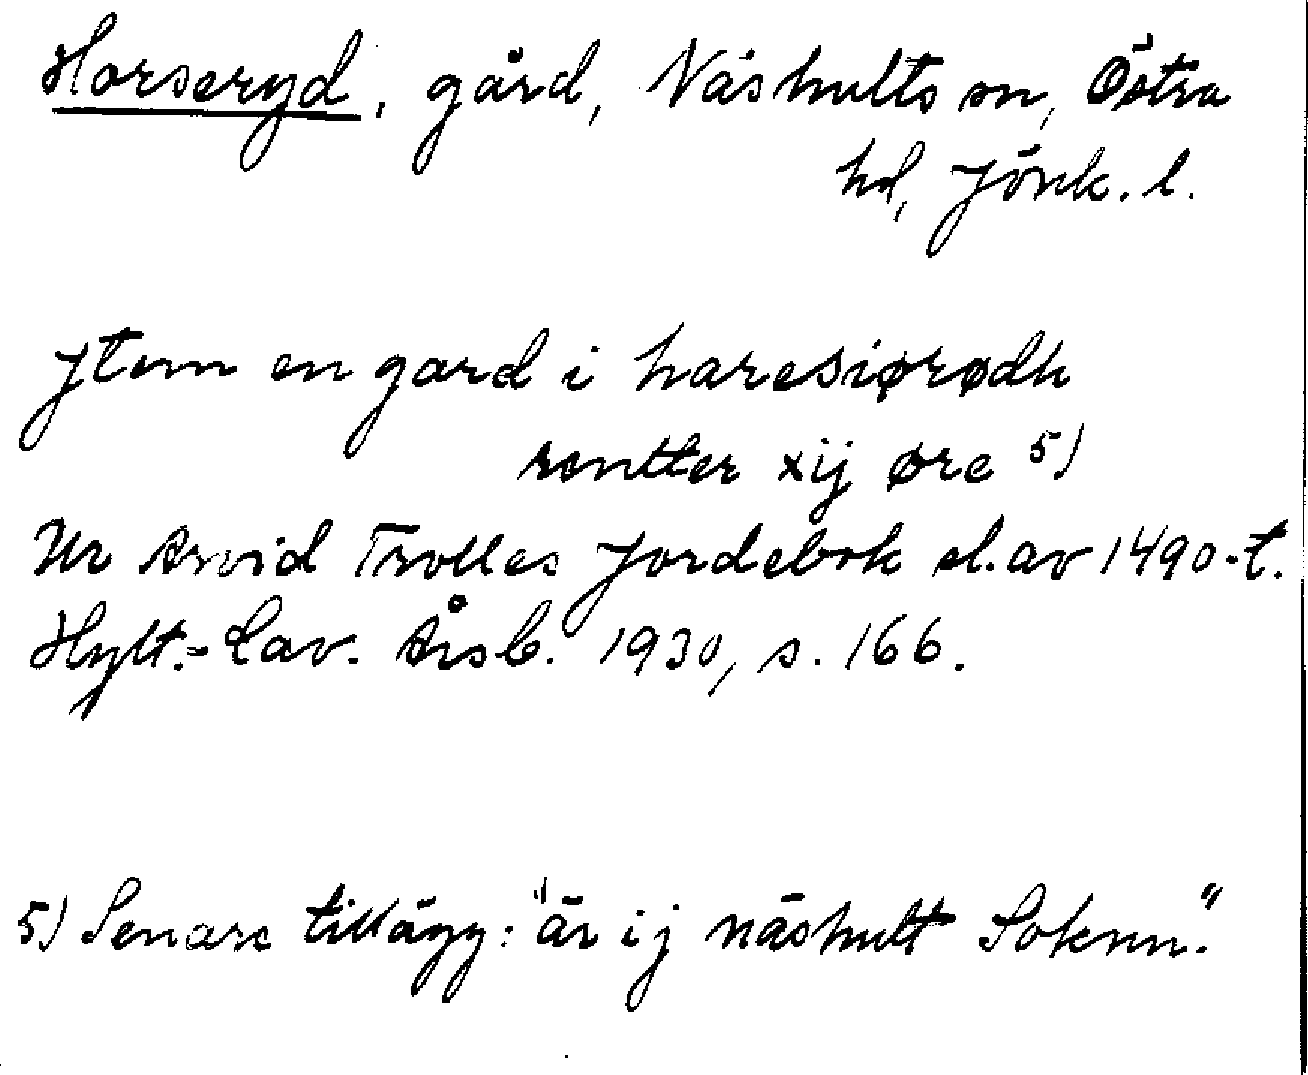 Horseryd, gård, Näshults sn, Östra
hd, Jönk. l.
Jtem en gard i haresiørødh
rentter xij øre 5)
Ur Arvid Trolles Jordebok sl. av 1490-t.
Hylt.-Cav. Årsb. 1930, s. 166.
5) Senare tillägg: "är ij näshult Soknn."